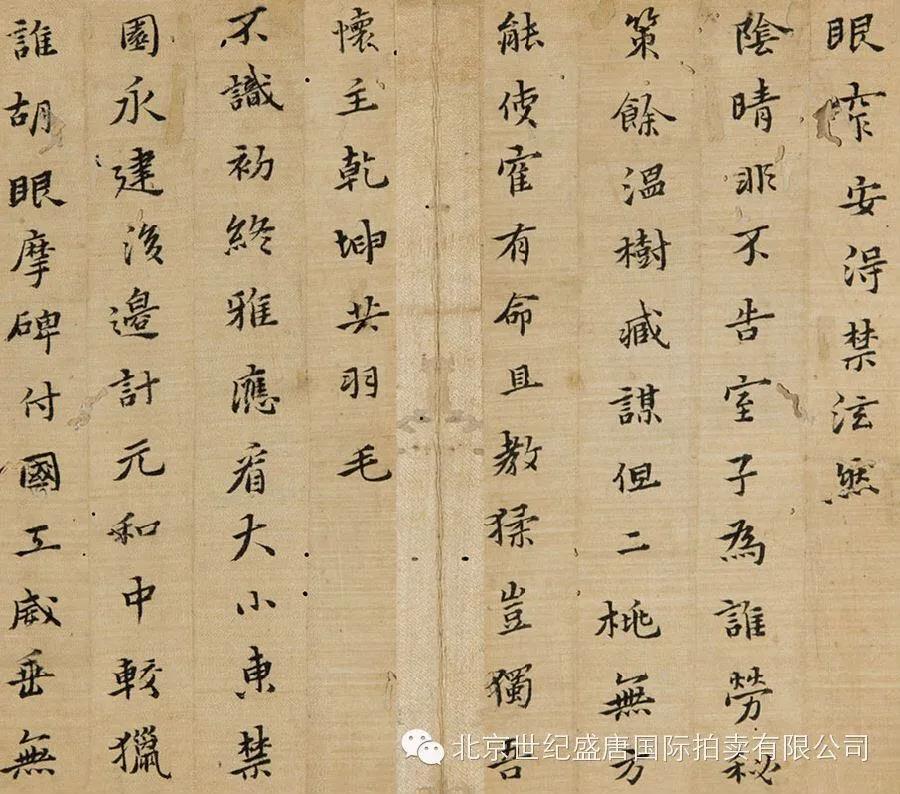 眼穿安得禁泫然
陰晴非不告室子為誰勞秘
策餘温樹臧謀但二桃無方
能使寉有命且教猱豈獨吾
懷主乾坤共羽毛
不識初終雅應看大小東禁
園永建後邉計元和中較獵
誰胡眼摩碑付國工威垂無
北京世纪盛唐国际拍卖有限公司